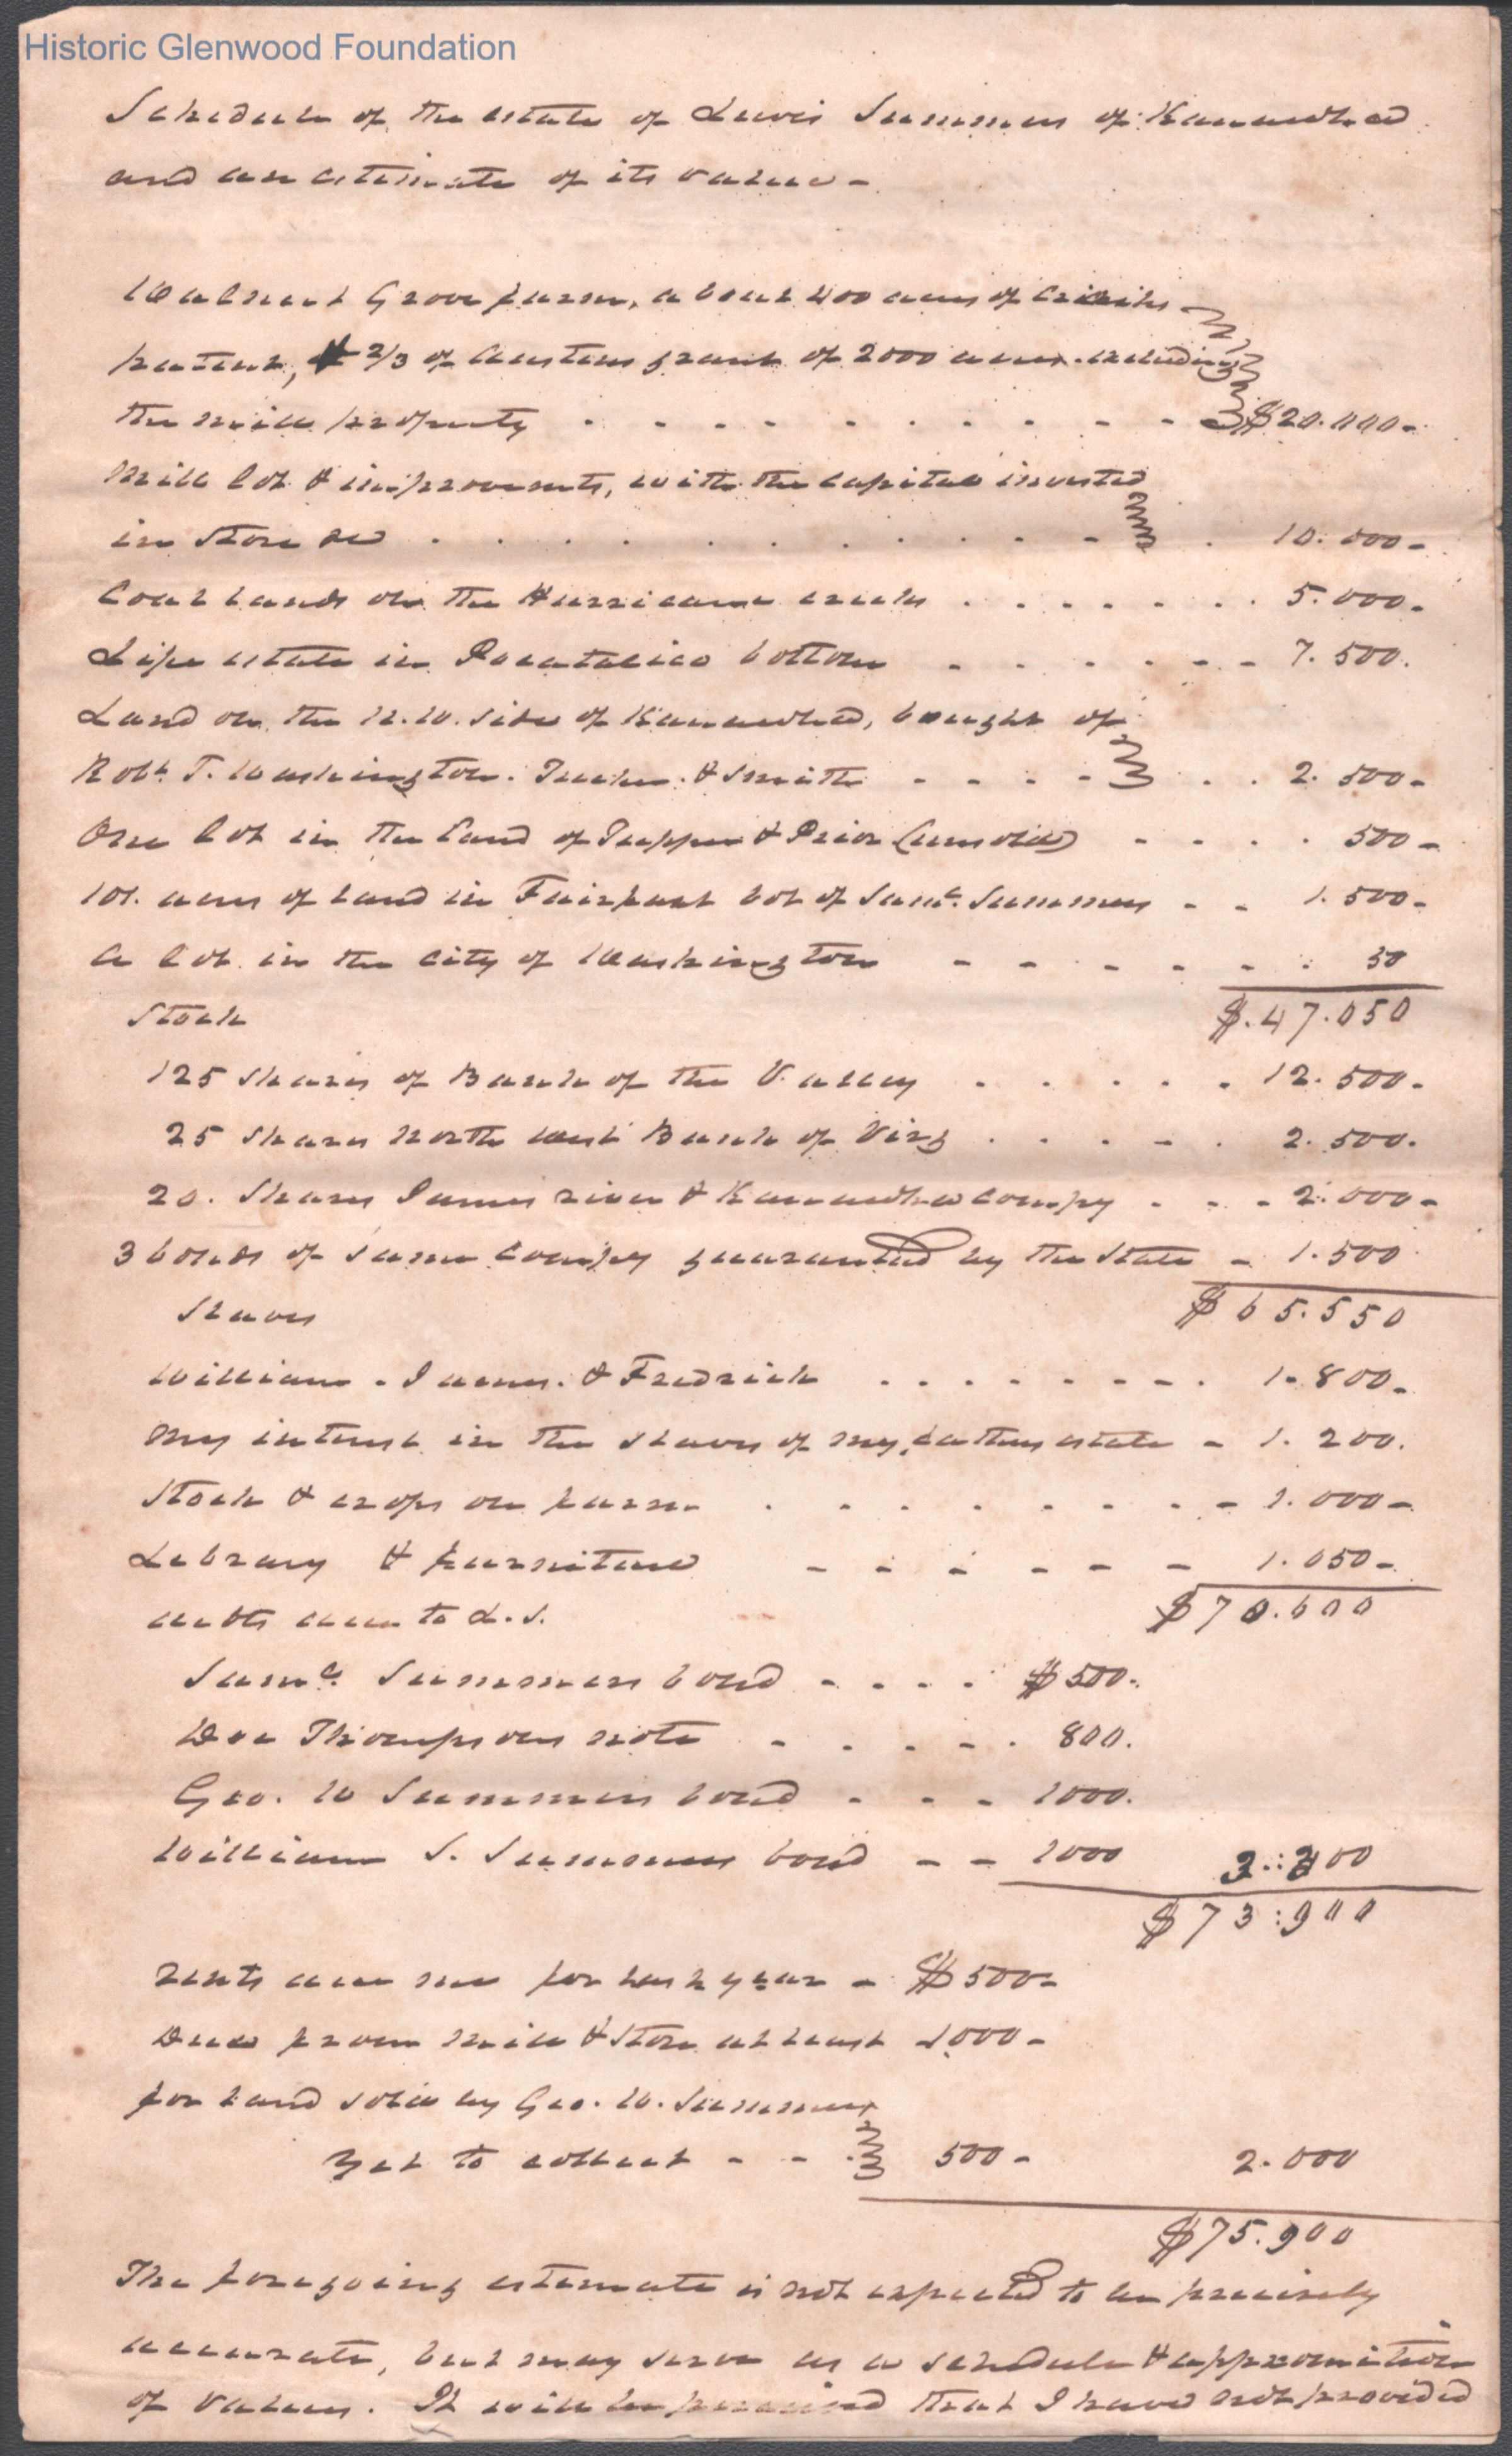 Historic Glenwood Foundation
Schedule of the estate of Lewis Summers of Kanawha
and an estimate of its value -
Walnut Grove farm, about 400 acres of
patent, & 2/3 of Austins grant of 2000 acres. including
the mill property $20.000-
Mill lot & improvements, with the capital invested
in Store &c 10.000-
Coal lands on the Hurricane creek 5.000-
Life estate in Pocatalico bottom 7.500.
Land on the N.W. side of Kanawha, bought of
Robt T. Washington. Tucker. & Smith 2.500-
One lot in the land of Tupper & Prior (unsold) 500-
101. acres of land in Fairfax lot of Saml. Summers 1.500-
A lot in the City of Washington 50
Stock $.47.050
125 shares of Bank of the Valley 12.500-
25 shares North west Bank of Virg 2.500.
20. Shares James river & Kanawha Compy 2.000-
3 bonds of same Compy guarantied by the State - 1.500
Slaves $65.550
William. James. & Fredrick 1.800-
My interest in the slaves of my fathers estate - 1.200.
Stock & crops on farm 1.000-
Library & furniture 1.050-
debts due to L.S. $70.600
Saml. Summers bond $500.
Doc Thompsons note 800.
Geo. W Summers bond 1000.
William S. Summers bond 1000 3.300
$73:900
Rents due me for last year - $500-
Due from Mill & Store at least 1000-
for land sold by Geo. W. Summers
yet to collect 500- 2.000
$75.900
The foregoing estimate is not expected to be precisely
accurate, but may serve as a schedule & approximation
of values. It will be perceived that I have not provided